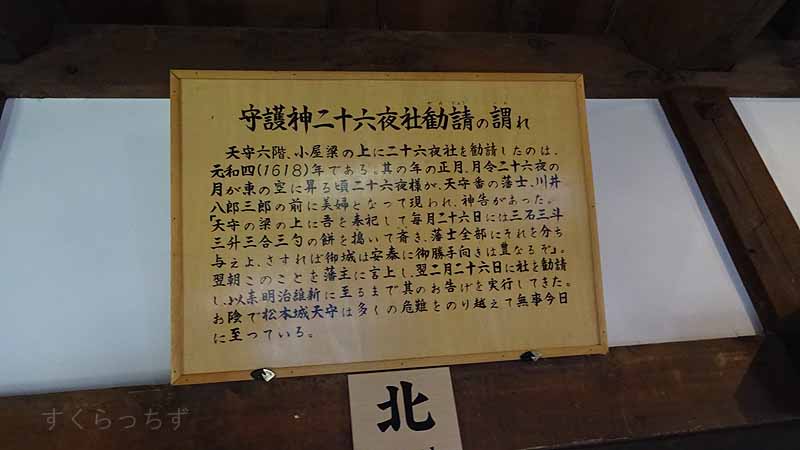 守護神二十六夜社勧請の謂れ
天守六階、小屋梁の上に二十六夜社を勧請したのは、
元和四(1618)年である。其の年の正月、月令二十六夜の
月が東の空に昇る頃二十六夜様が、天守番の藩士、川井
八郎三郎の前に美婦となって現われ、神告があった。
「天守の梁の上に吾を奉祀して毎月二十六日には三石三斗
三升三合三勺の餅を搗いて斎き、藩士全部にそれを分ち
与えよ、さすれば御城は安泰に御勝手向きは豊なるぞ」。
翌朝このことを藩主に言上し、翌二月二十六日に社を勧請
し、以来明治維新に至るまで其のお告げを実行してきた。
お陰で松本城天守は多くの危難をのり越えて無事今日
に至っている。
北
すくらっちず